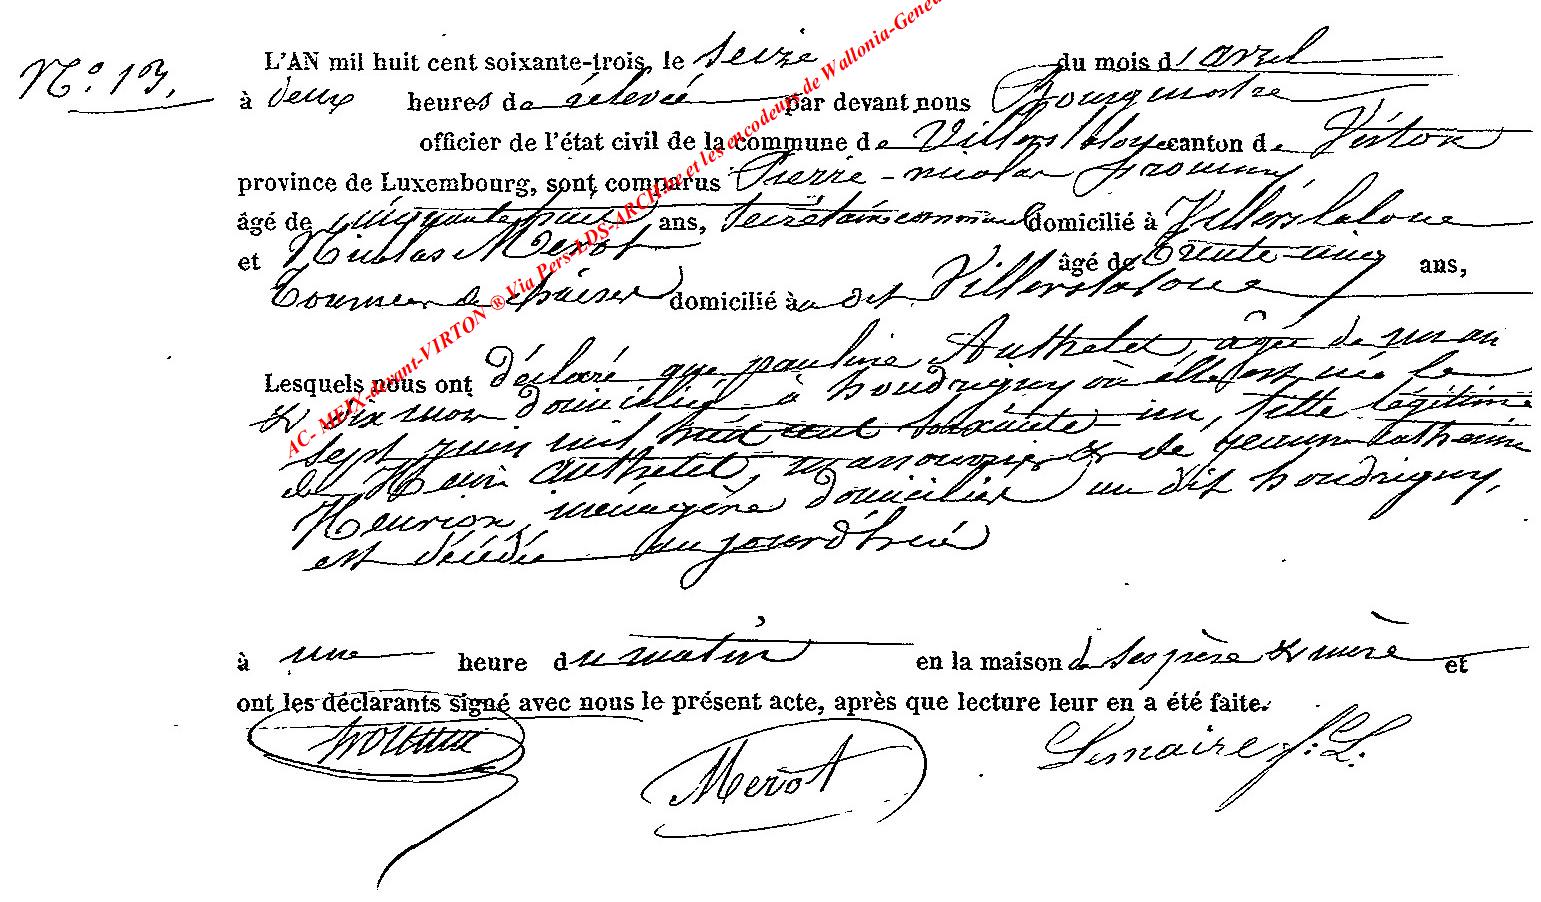 N.° 13.
L'AN mil huit cent soixante-trois, le Seize du mois d'avril
à deux heures de rélevée par devant nous Bourgmestre
officier de l'état civil de la commune de Villerslaloue canton de Virton
province de Luxembourg, sont comparus Pierre-nicolas
âgé de ans, Secrétaire communal domicilié à Villerslaloue
et Nicolas Merot âgé de trente-cinq ans,
Tourneur de chaises domicilié au dit Villerslaloue
Lesquels nous ont déclaré que pauline Authelet âgée de un an
& dix mois domicilié à houdrigny où elle est née le
sept juin mil huit cent soixante-un, fille légitime
de Henri Authelet, manouvrier & de jeanne catherine
Henrion, ménagère domicilier au dit houdrigny,
est décédée aujourd'huié
à une heure du matin en la maison de ses père & mère et
ont les déclarants signé avec nous le présent acte, après que lecture leur en a été faite.
Merot
Lemaire f: L.
AC- MEIX-devant-VIRTON ® Via Pers-LDS-ARCH.be et les encodeurs de Wallonia-Genea